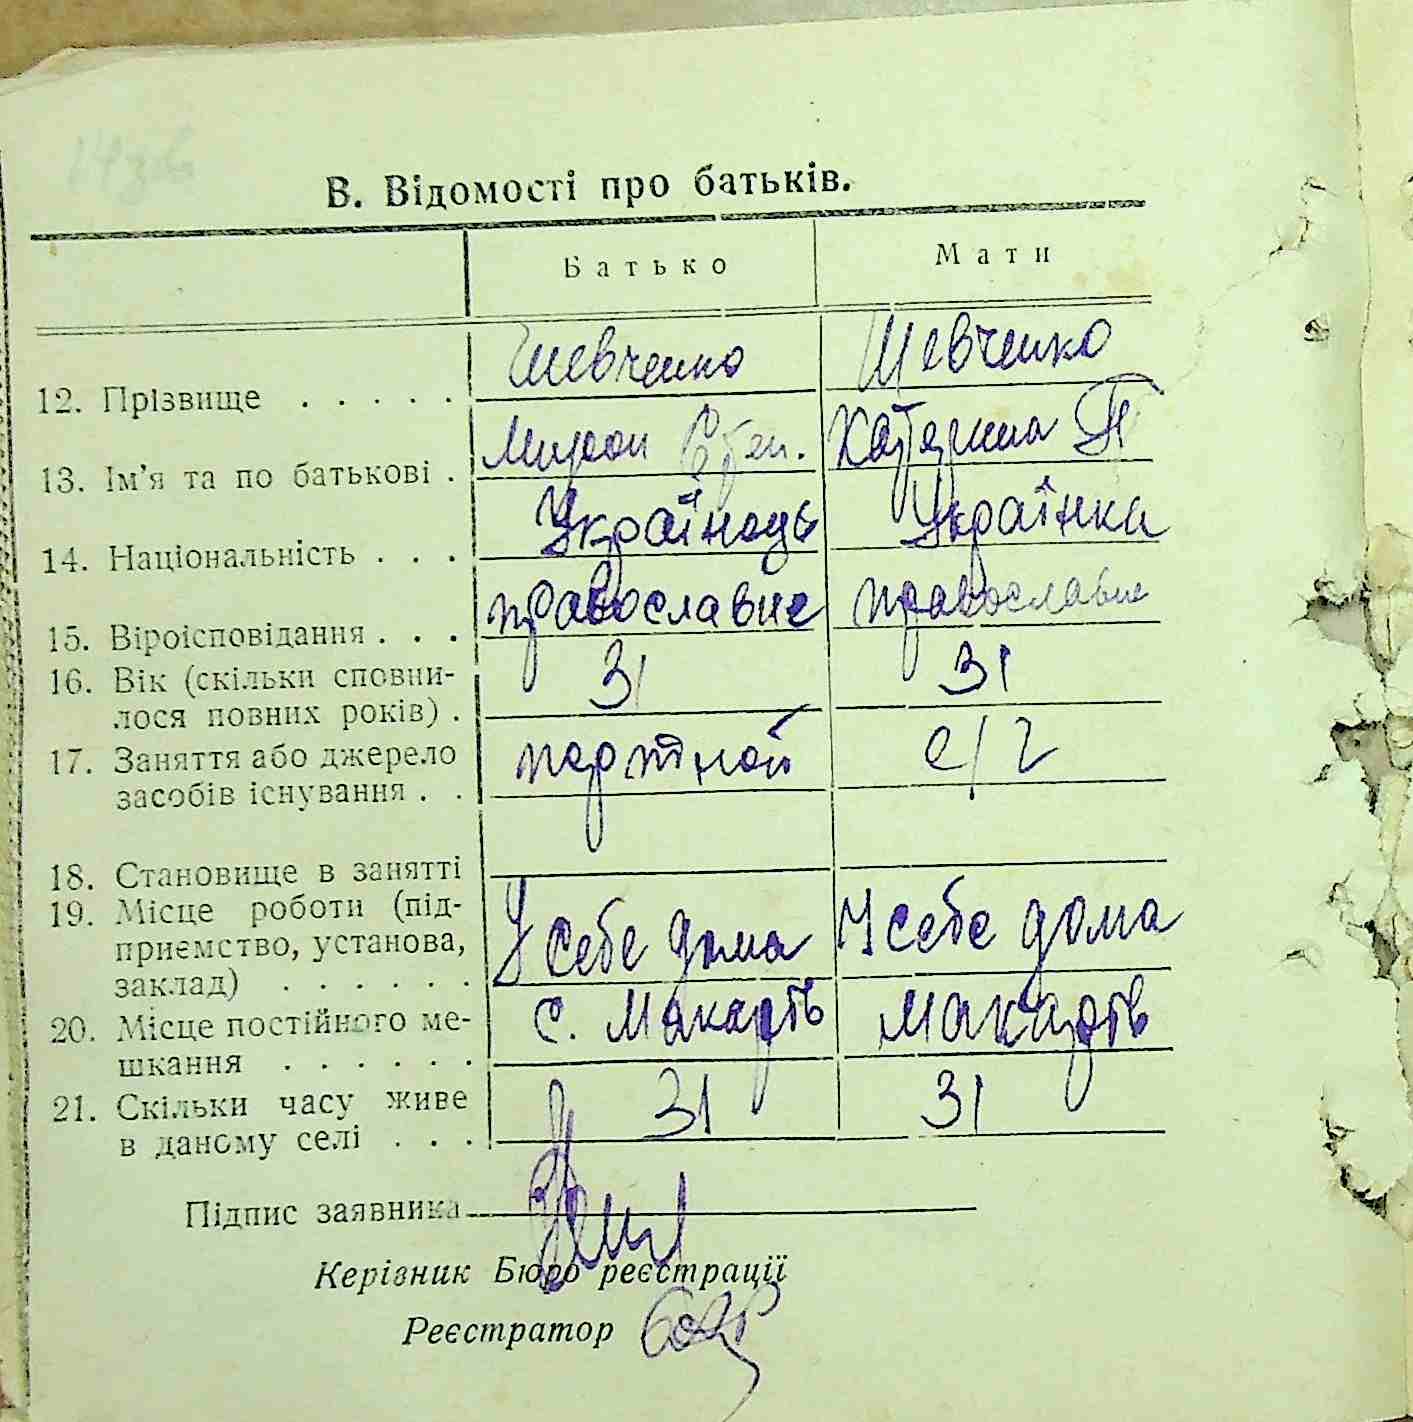 В. Відомості про батьків.
Батько Мати
12. Прізвище . . . . . Шевченко Шевченко
13. Ім'я та по батькові . Мирон Степ. Катерина П
14. Національність . . . Українець Українка
15. Віроісповідання . . . православне православне
16. Вік (скільки сповни-
лося повних років) . 31 31
17. Заняття або джерело
засобів існування . . портной с/г
18. Становище в занятті
19. Місце роботи (під-
приємство, установа,
заклад) . . . . . . У себе дома У себе дома
20. Місце постійного ме-
шкання . . . . . . с. Макарів Макарів
21. Скільки часу живе
в даному селі . . . 31 31
Підпис заявника
Керівник Бюро реєстрації
Реєстратор